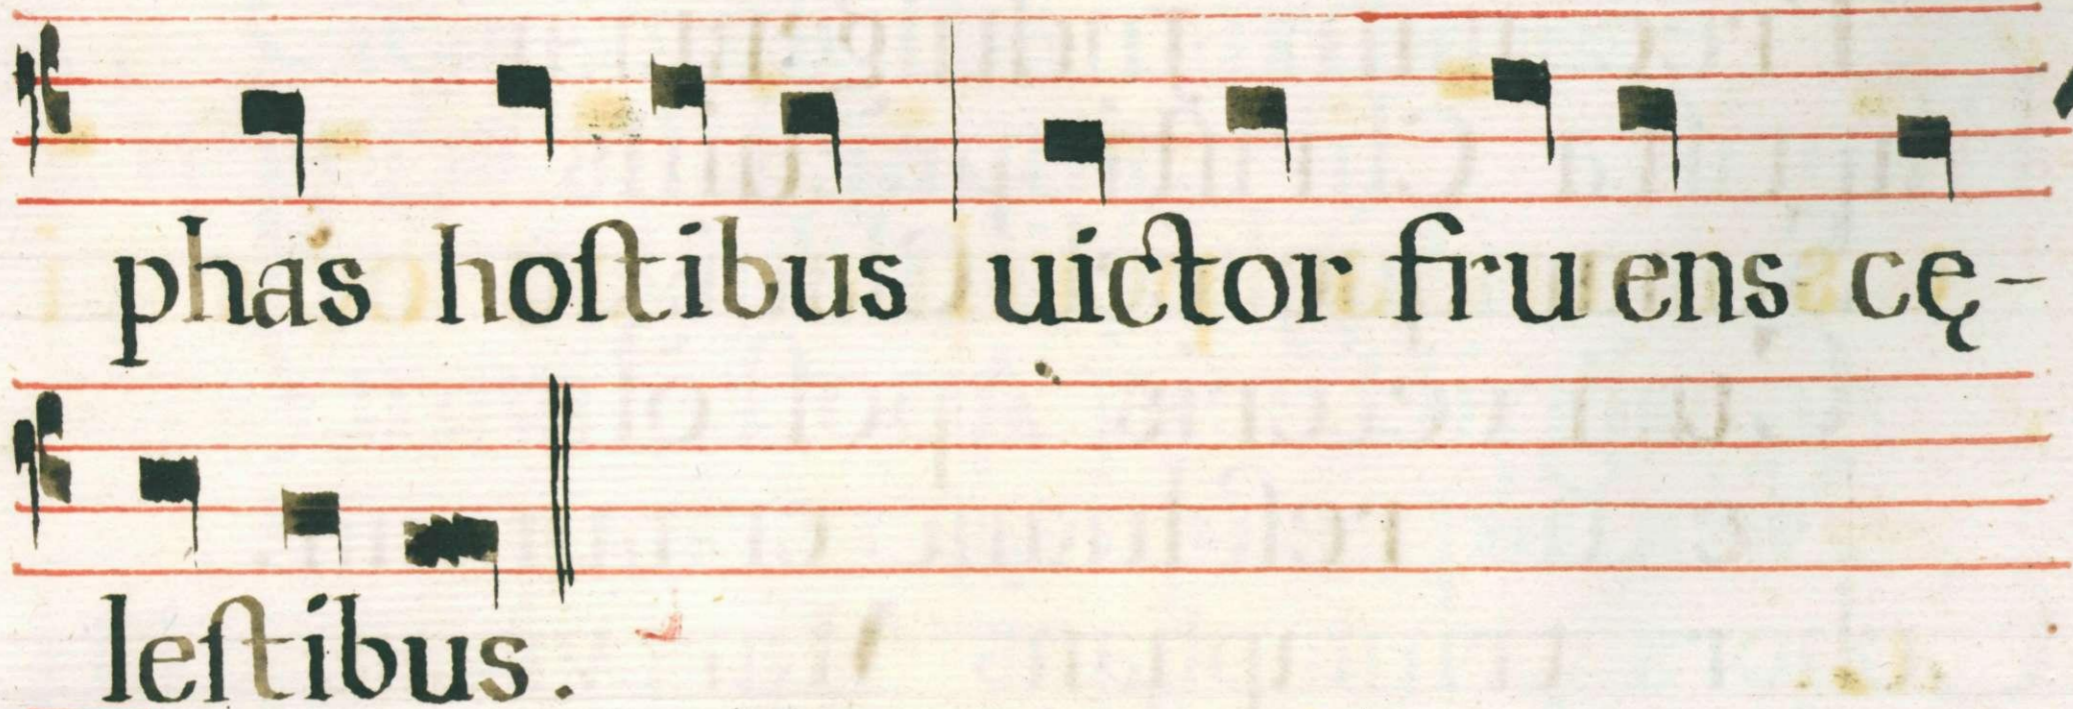 phas hoſtibus uictor fruens cę-
leſtibus.